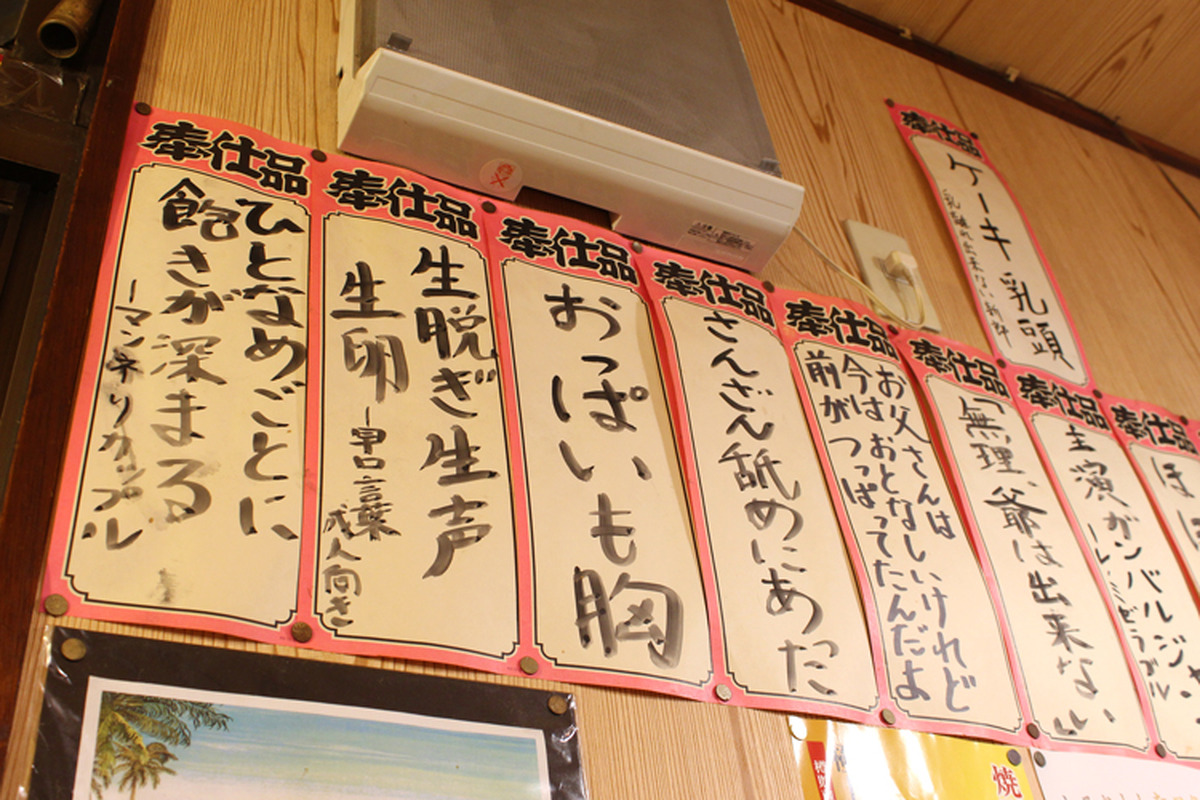 奉仕品
ひとなめごとに
飽きが深まる
ーマンネリカップル
奉仕品
生脱ぎ生声
生卵
ー早口言葉
成人向き
奉仕品
おっぱいも胸
奉仕品
さんざん舐めにあった
奉仕品
お父さんは
今はおとなしいけれど
前がつっぱってたんだよ
奉仕品
「無理、爺は出来ない
奉仕品
主演ガンバルジャン
奉仕品
奉仕品
ケーキ乳頭
焼